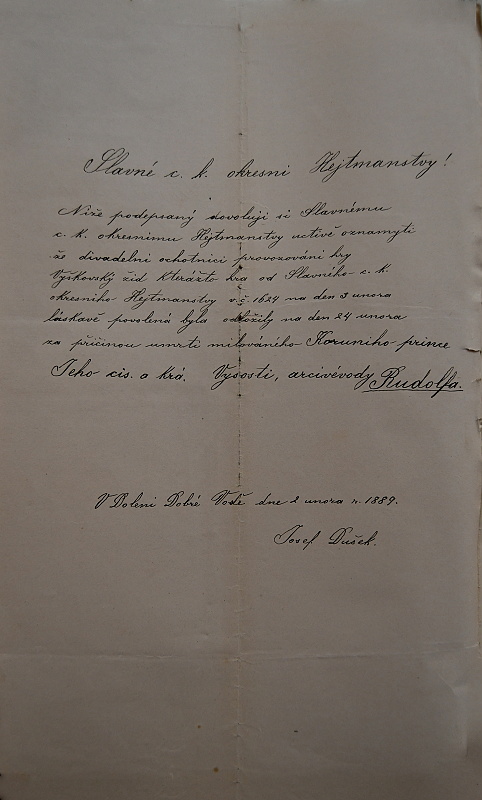 Slavné c. k. okresni Hejtmanstvy!
Niže podepsaný dovoluji si Slavnému
c. k. okresnimu Hejtmanstvy uctivě oznamyti
že divadelni ochotnici provozováni hry
Vyskovský žid kterážto hra od Slavniho c. k.
okresniho Hejtmanstvy v.č. 1624 na den 3 unora
láskavě povolená byla odložily na den 24 unora
za přičinou umrti milovániho Koruniho prince
Jeho cis. a krá. Vysosti, arcivévody Rudolfa.
V Doleni Dobré Vodě dne 2 unora r. 1889.
Josef Dušek.